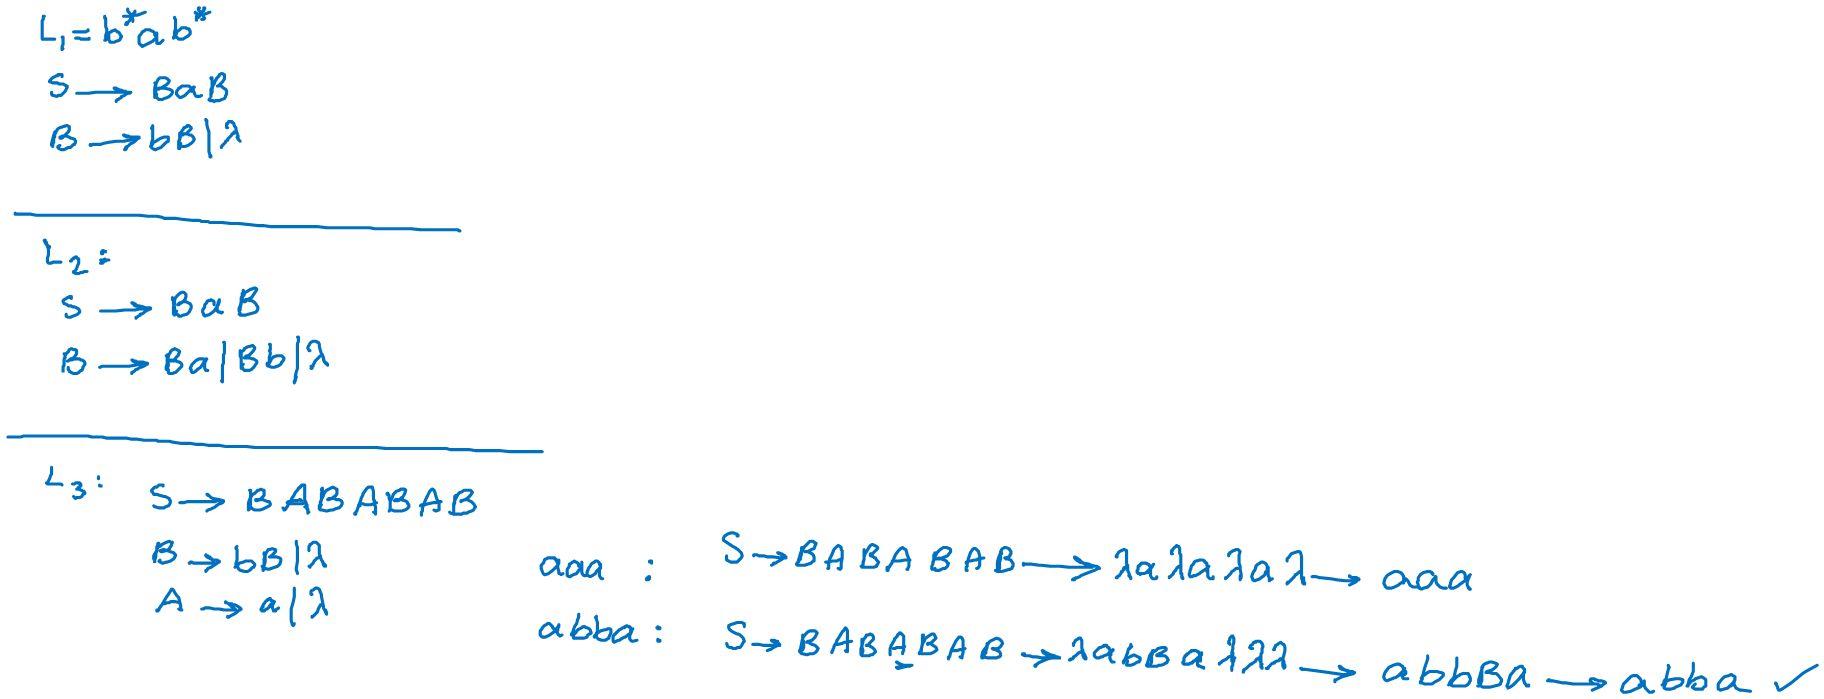 L₁ = b*ab*
S → BaB
B → bB|λ
L₂:
S → BaB
B → Ba|Bb|λ
L₃: S → BABABAB
B → bB|λ
A → a|λ
aaa : S → BABABAB → λaλaλaλ → aaa
abba : S → BABABAB → λabBaλλλ → abbBa → abba ✓